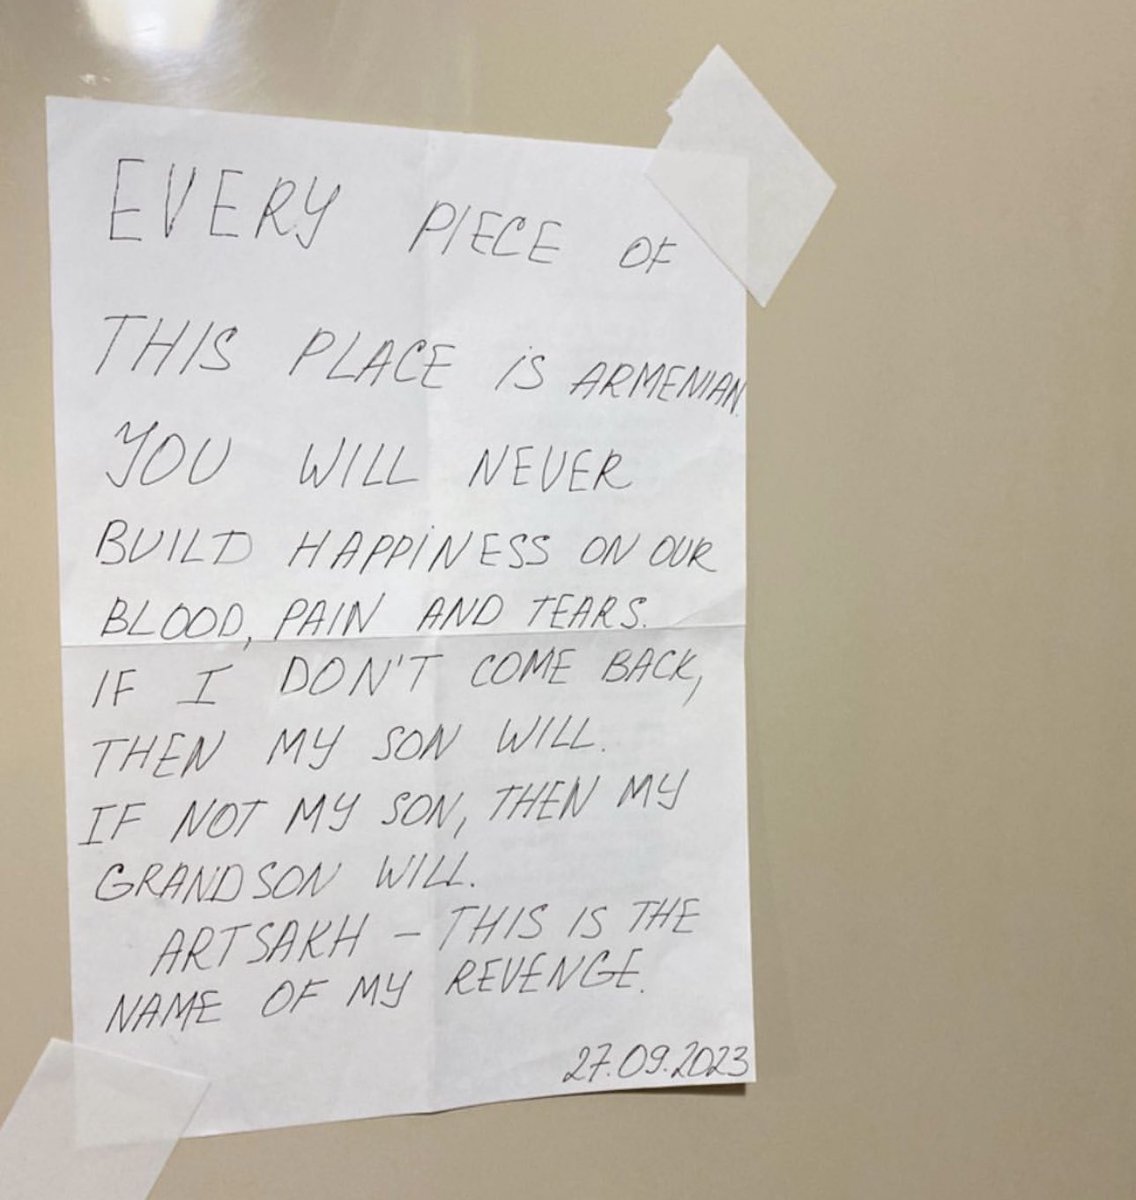 EVERY PIECE OF
THIS PLACE iS ARMENIAN.
YOU WILL NEVER
BUILD HAPPiNESS ON OUR
BLOOD, PAIN AND TEARS.
IF I DON'T COME BACK,
THEN MY SON WILL.
IF NOT MY SON, THEN MY
GRANDSON WILL.
ARTSAKH – THIS IS THE
NAME OF MY REVENGE.
27.09.2023